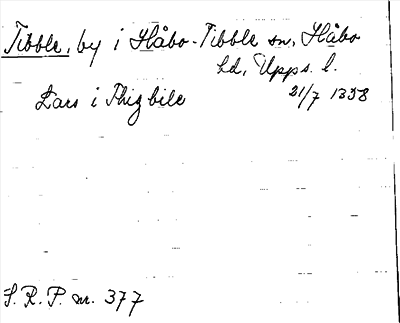 Tibble, by i Håbo-Tibble sn, Håbo
hd, Upps. l.
Lars i Thigbile 21/7 1358
S. R. P. nr. 377